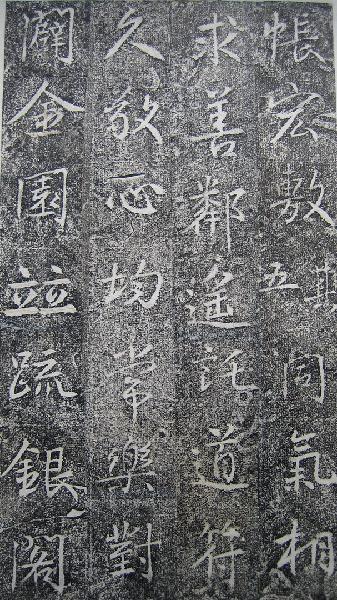 帳宏敷其五同氣相
求善鄰遙託道符
久敬心均常樂對
闢金園竝疏銀閣